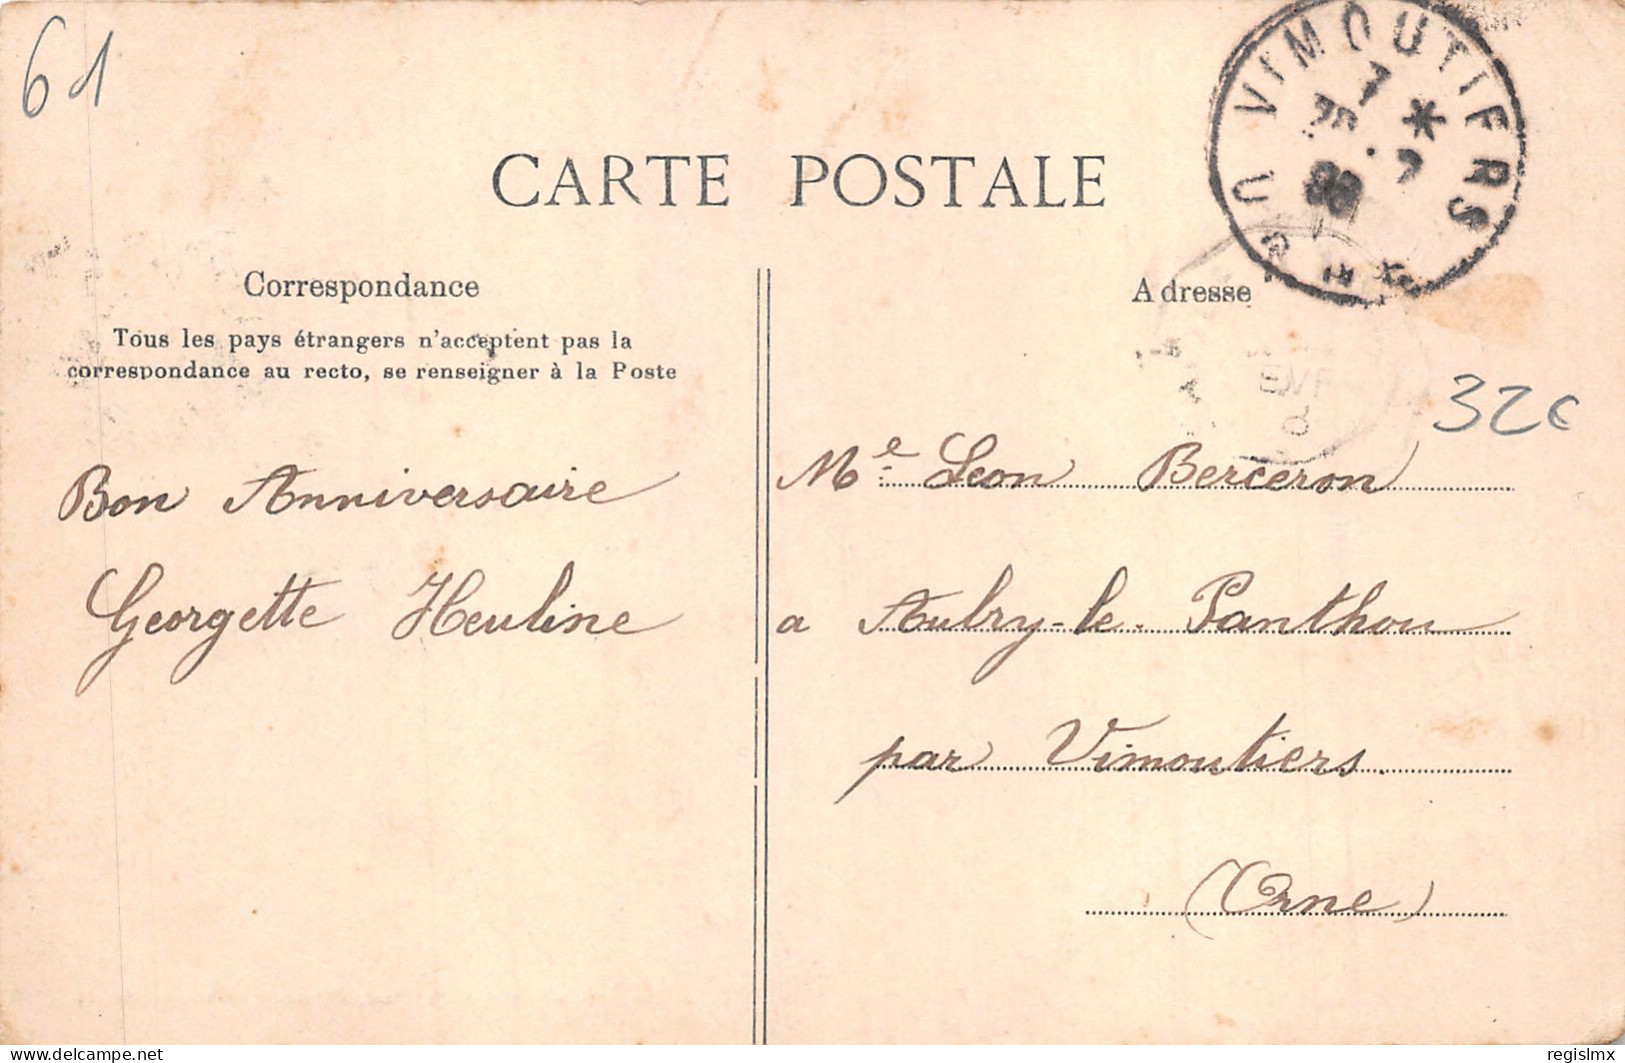 61
VIMOUTIERS
CARTE POSTALE
Correspondance
Adresse
Tous les pays étrangers n'acceptent pas la
correspondance au recto, se renseigner à la Poste
32€
Bon Anniversaire
Georgette Heuline
Me Leon Berceron
a Aubry-le-Panthou
par Vimoutiers.
(Orne)
delcampe.net
regislmx